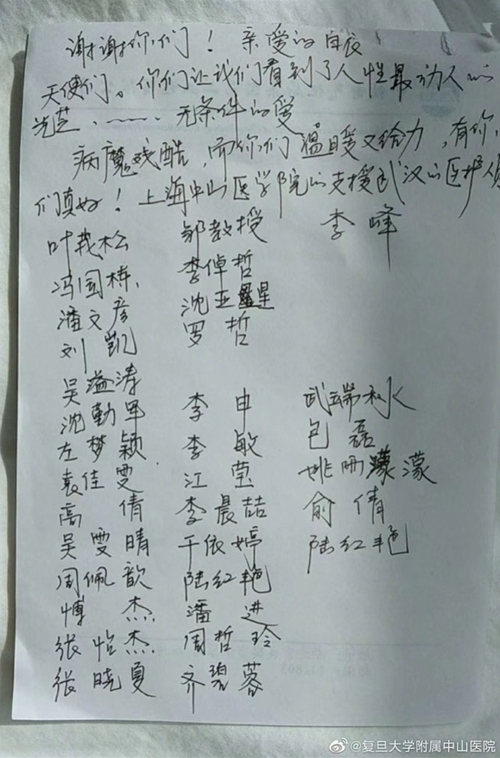 谢谢你们！亲爱的白衣
天使们。你们让我们看到了人性最动人的
光芒，——无条件的爱
病魔残酷，而你们温暖又给力，有你
们真好！上海中山医学院的支援武汉的医护人
叶茂松 邹教授 李峰
冯国栋 李倬哲
潘文彦 沈亚星
刘凯 罗哲
吴溢涛
沈勤军 李申 武瑞秋水
左梦颖 李敏 包磊
袁佳雯 江莹 姚雨濛
高倩 李晨喆 俞倩
吴雯晴 于依婷 陆红艳
周佩歆 陆红艳
博杰 潘进
张怡杰 周哲玲
张晓夏 齐碧蓉
@复旦大学附属中山医院